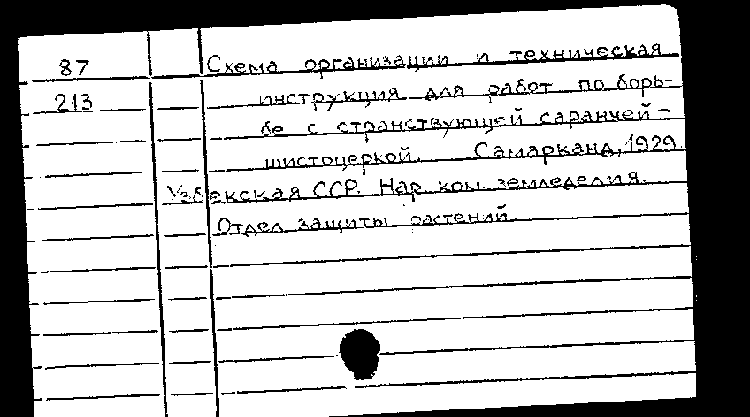 87 Схема организации и техническая
213 инструкция для работ по борь-
бе с странствующей саранчей -
шистоцеркой. Самарканд, 1929.
Узбекская ССР. Нар. ком. земледелия.
Отдел защиты растений